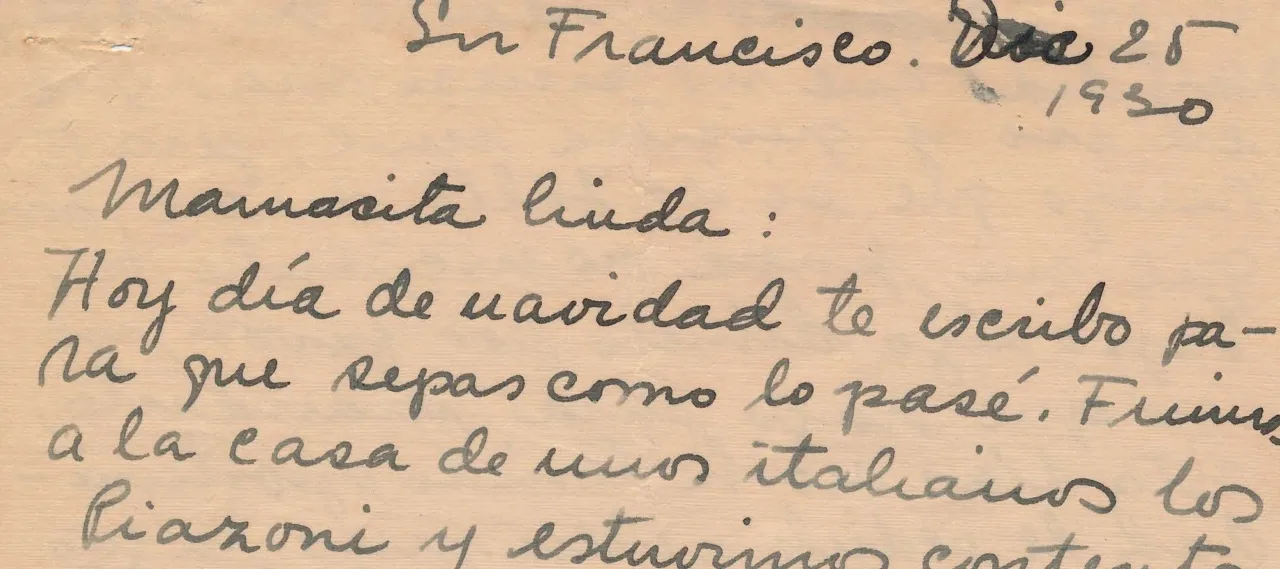 Sn Francisco. Dic 25
1930
Mamacita linda :
Hoy día de navidad te escribo pa-
ra que sepas como lo pasé. Fuimos
a la casa de unos italianos los
Piazoni y estuvimos contento